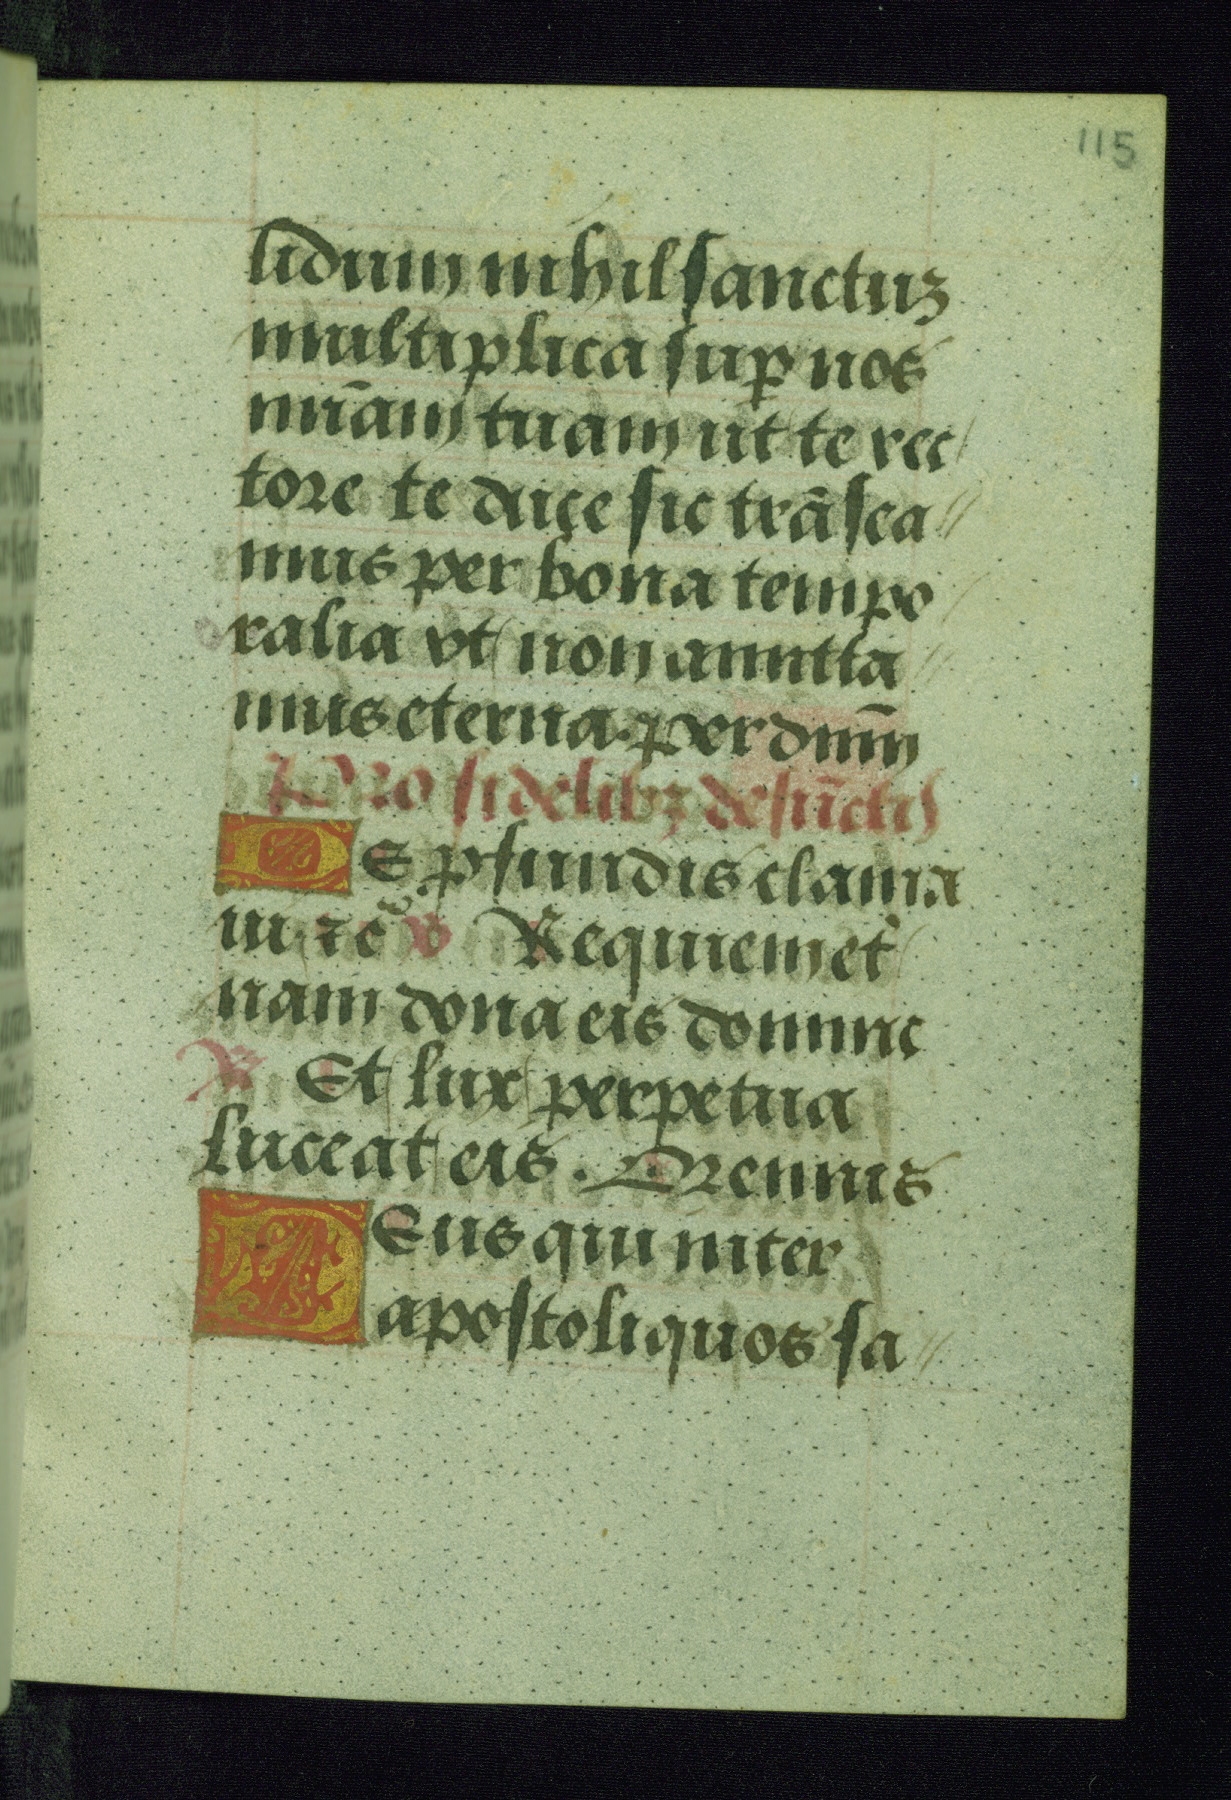 115
lidum nihil sanctuꝫ
multiplica suꝑ nos
mīam tuam ut te rec
tore te duçe sic trāsea
mus per bona tempo
ralia vt non amitta
mus eterna. per dnm̄
Pro fidelibꝫ defūctis
De ꝓfundis clama
ui ⁊c̃ v̄ Requiem et̾
nam dona eis domine
℟ Et lux perpetua
luceat eis. Oremus
Deus qui inter
apostoliquos sa